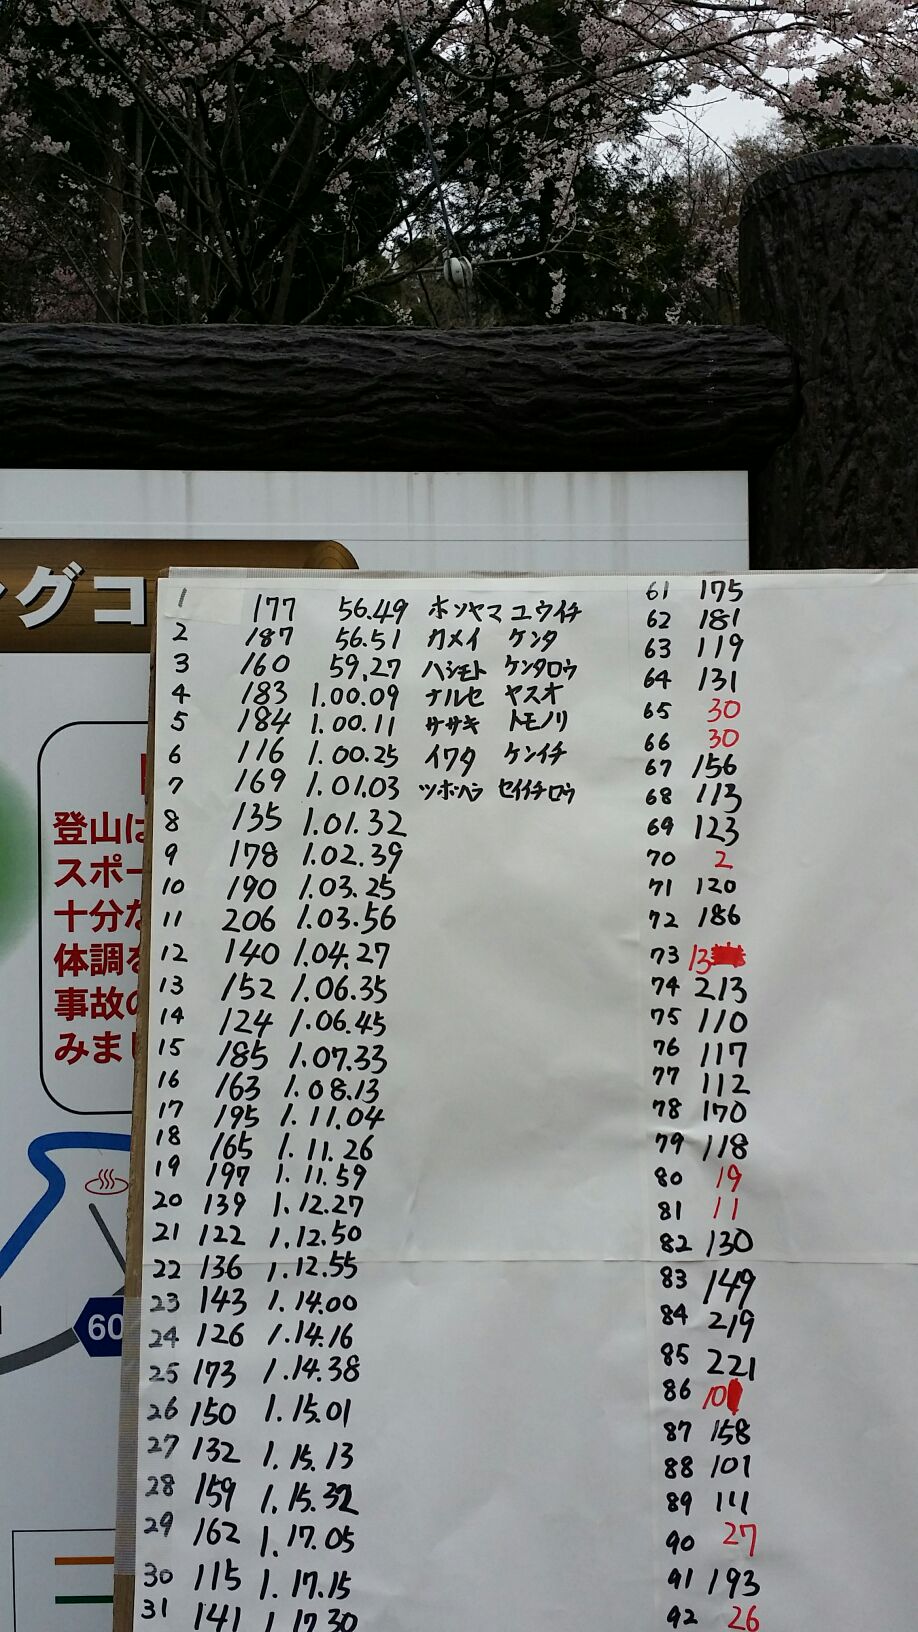 ングコ
登山は
スポー
十分な
体調を
事故の
みまし
60
1 177 56.49 ホンヤマ ユウイチ
2 187 56.51 カメイ ケンタ
3 160 59.27 ハシモト ケンタロウ
4 183 1.00.09 ナルセ ヤスオ
5 184 1.00.11 ササキ トモノリ
6 116 1.00.25 イワタ ケンイチ
7 169 1.01.03 ツボハラ セイイチロウ
8 135 1.01.32
9 178 1.02.39
10 190 1.03.25
11 206 1.03.56
12 140 1.04.27
13 152 1.06.35
14 124 1.06.45
15 185 1.07.33
16 163 1.08.13
17 195 1.11.04
18 165 1.11.26
19 197 1.11.59
20 139 1.12.27
21 122 1.12.50
22 136 1.12.55
23 143 1.14.00
24 126 1.14.16
25 173 1.14.38
26 150 1.15.01
27 132 1.15.13
28 159 1.15.32
29 162 1.17.05
30 115 1.17.15
31 141 1.17.30
61 175
62 181
63 119
64 131
65 30
66 30
67 156
68 113
69 123
70 2
71 120
72 186
73 13
74 213
75 110
76 117
77 112
78 170
79 118
80 19
81 11
82 130
83 149
84 219
85 221
86 10
87 158
88 101
89 111
90 27
91 193
92 26